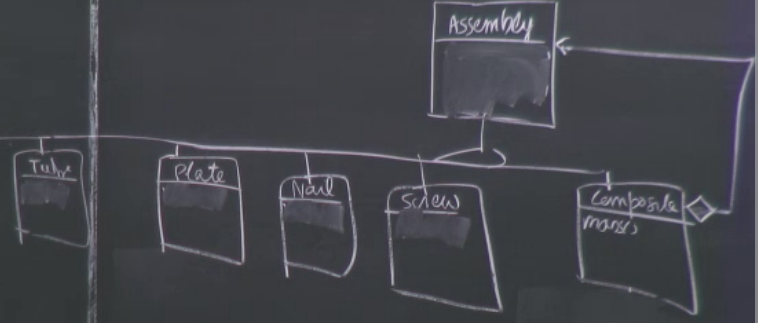 Assembly
Tube
Plate
Nail
Screw
Composite